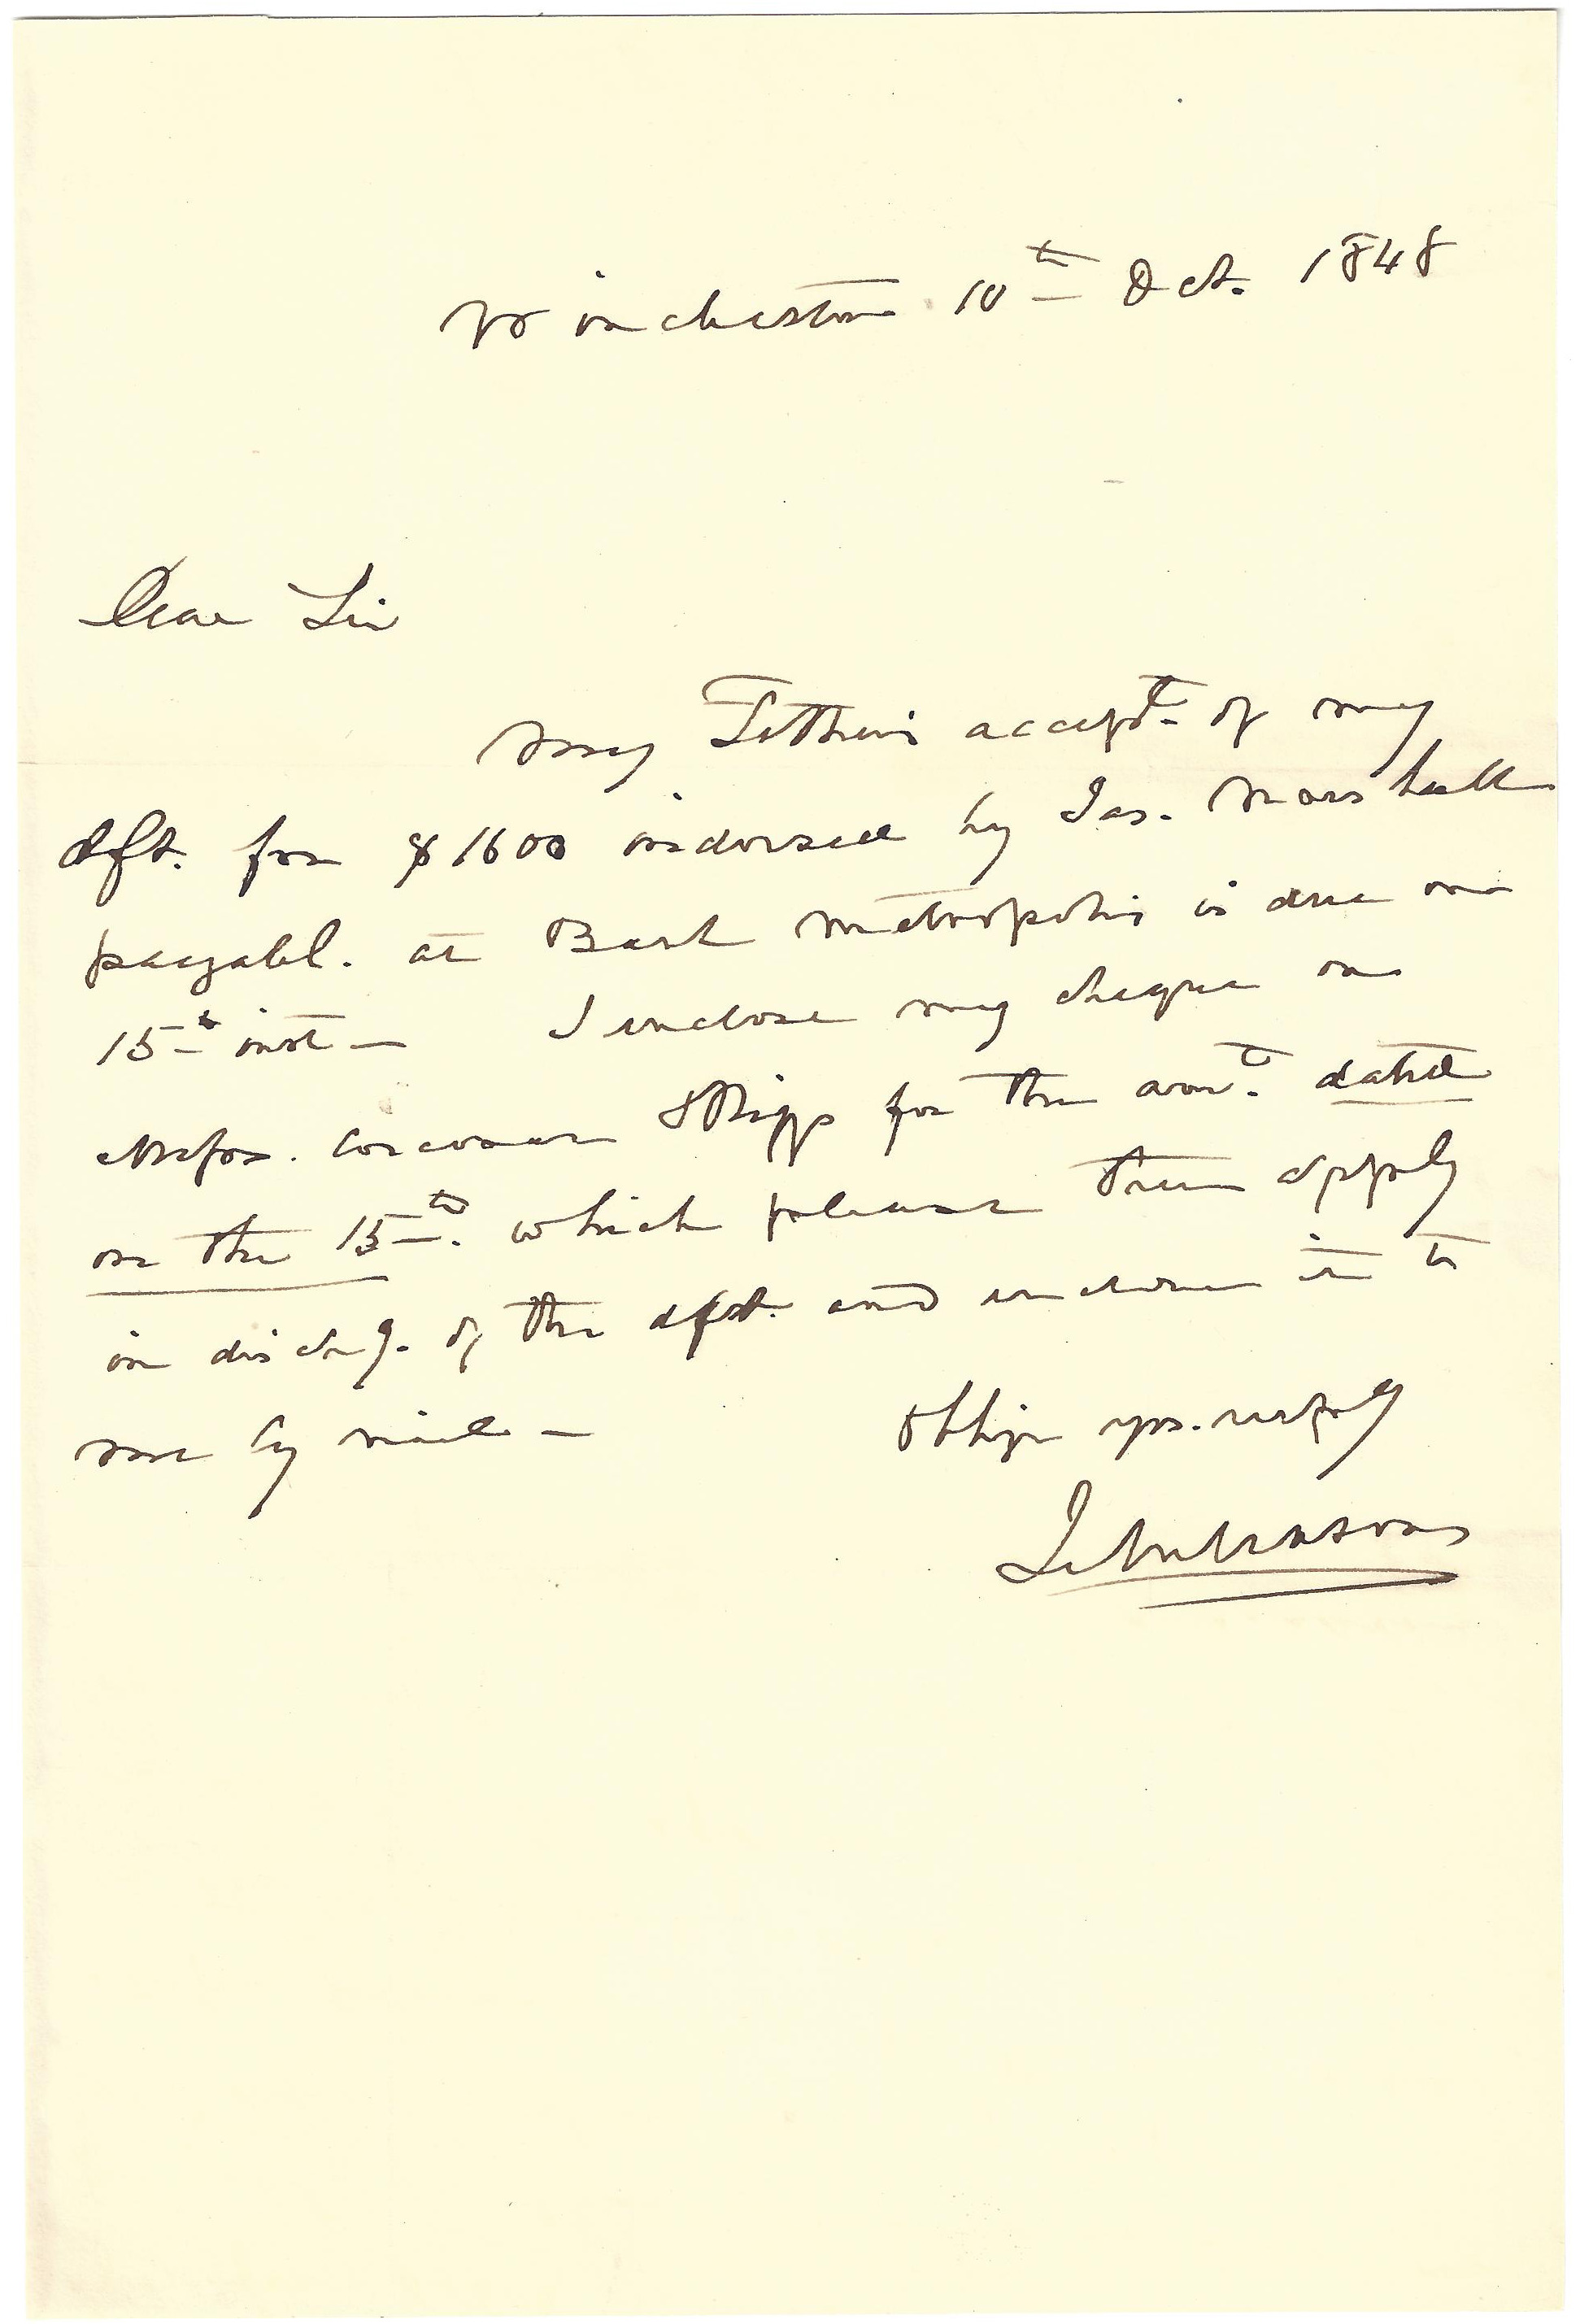 Winchester 10th Oct. 1848
Dear Sir
My Father's accept. of my
dft. for $1600 indorsed by Jas. Marshall
payabl. at Bank Metropolis is due on
15th inst — I enclose my cheque on
Messrs. Corcoran & Riggs for the amt. dated
on the 15th. which please then apply
in dischg. of the dft. and enclose it to
me by mail — Oblige yrs. respfly